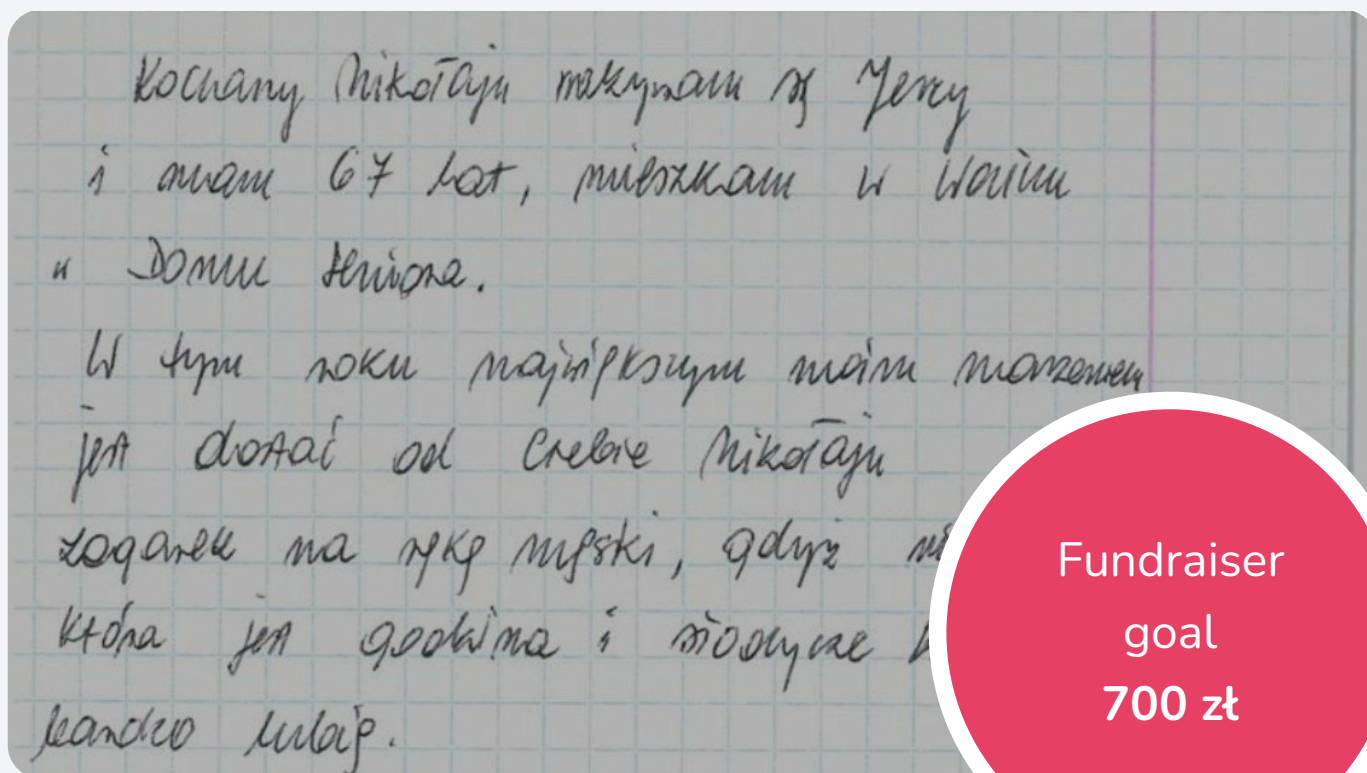 Kochany Mikołaju nazywam się Jerzy
i mam 67 lat, mieszkam w
" Domu Seniora.
W tym roku największym moim marzeniem
jest dostać od Ciebie Mikołaju
zegarek na rękę męski, gdyż
która jest godzina i słodycze
bardzo lubię.
Fundraiser
goal
700 zł